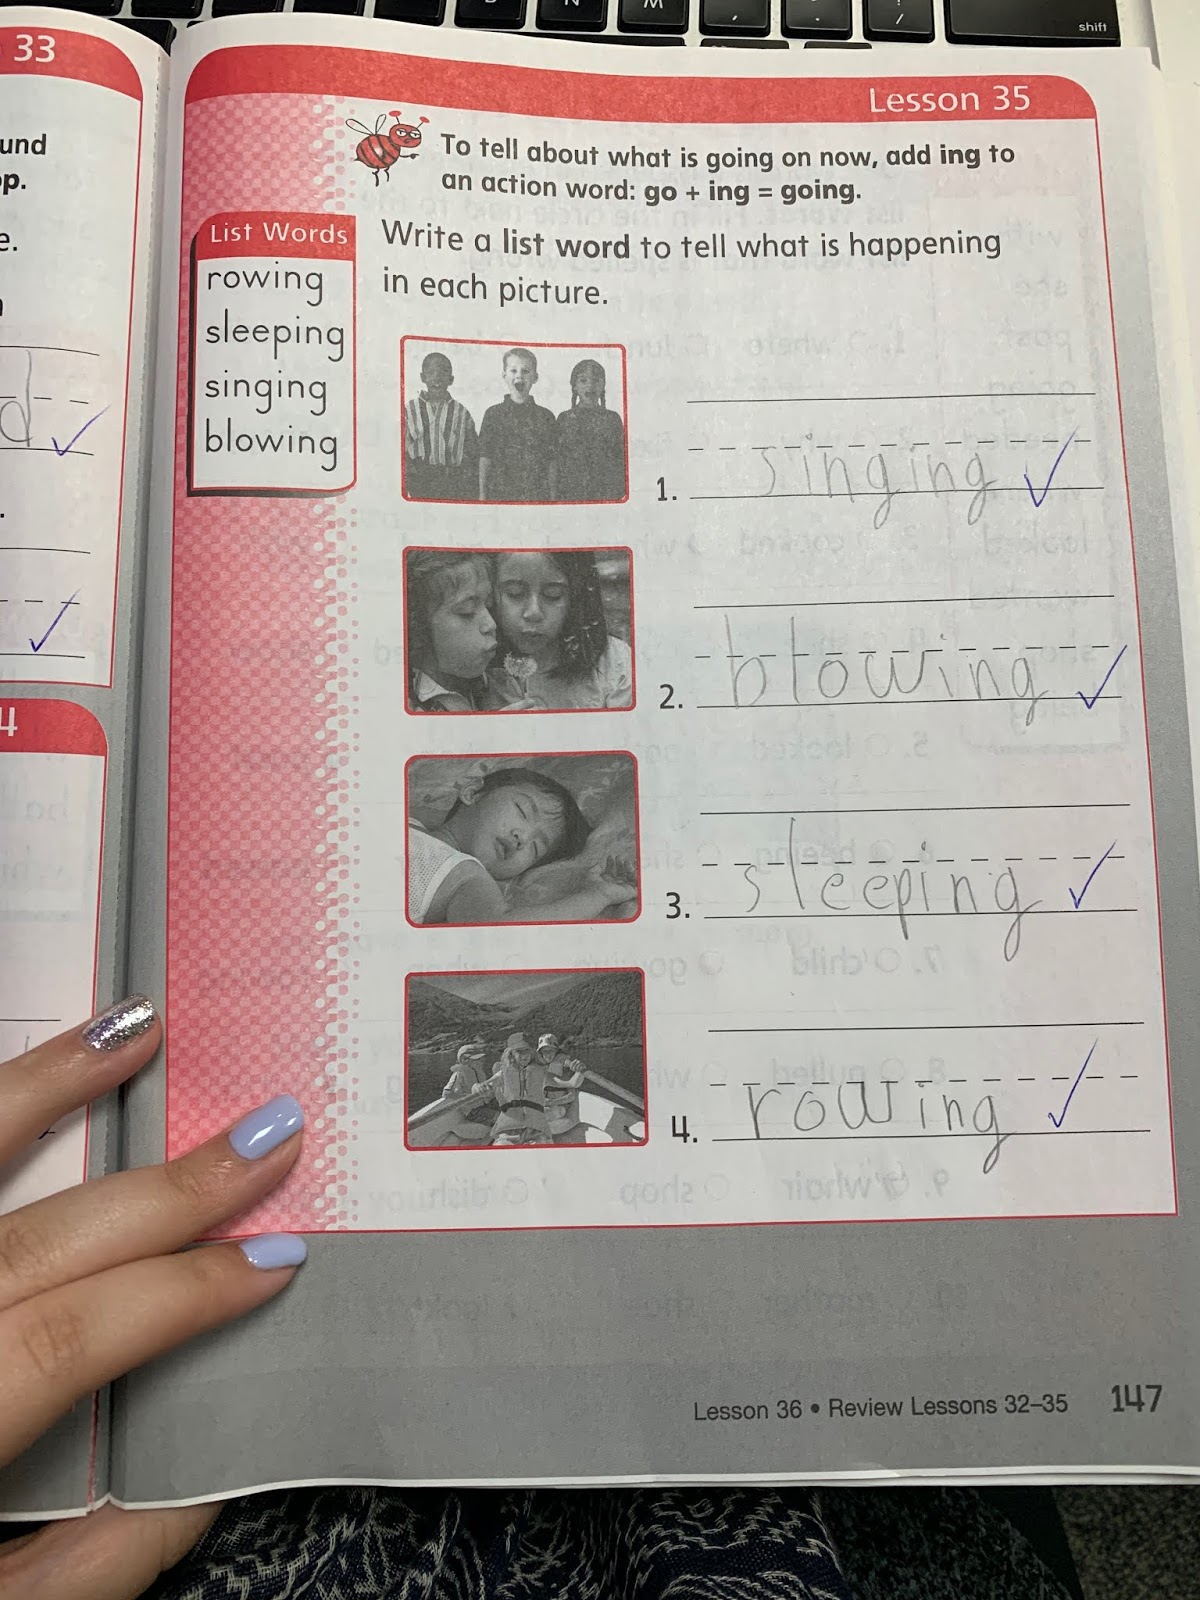 shift
33
und
p.
e.
d
4
Lesson 35
To tell about what is going on now, add ing to
an action word: go + ing = going.
List Words
rowing
sleeping
singing
blowing
Write a list word to tell what is happening
in each picture.
1. singing
2. blowing
3. sleeping
4. rowing
Lesson 36 • Review Lessons 32–35 147